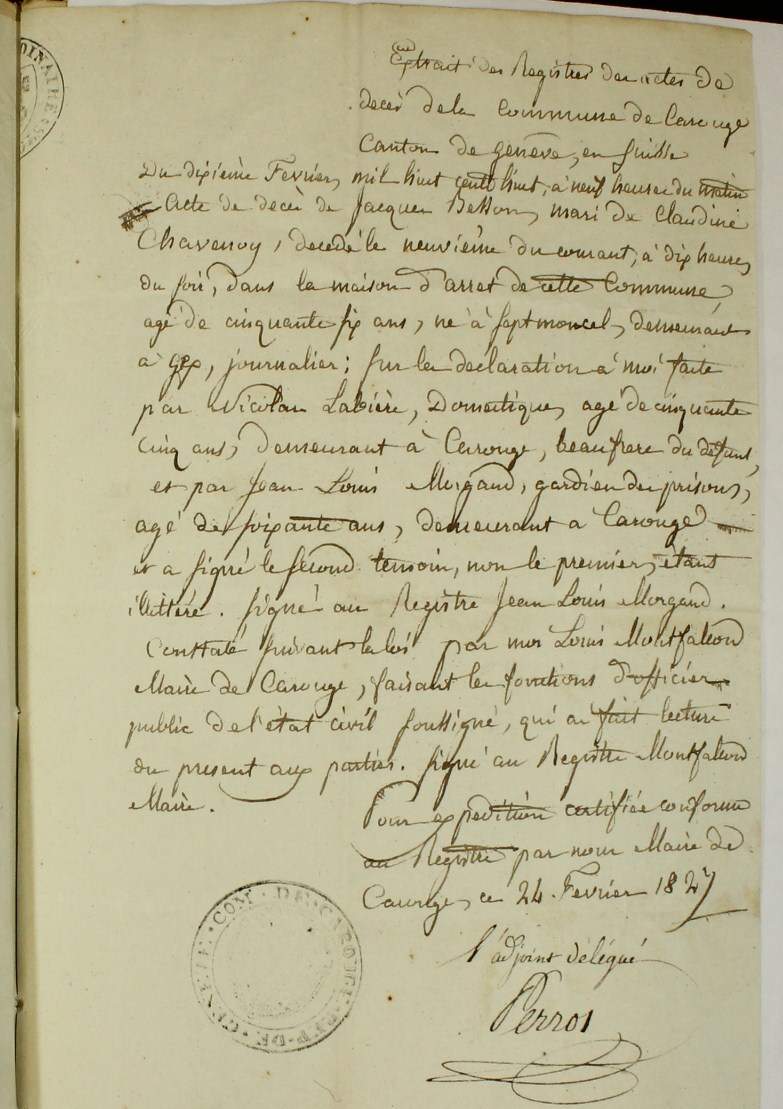 OINAIRE
Extrait des Registres des actes de
decès de la Commune de Carouge
Canton de genève, en suisse
Du dixième Fevrier, mil huit cents huit, à neuf heures du matin
Acte de decès de Jacques Besson, mari de Claudine
Chavenoy, decedé le neuvième du courant, à dix heures
du soir, dans la maison d'arret de cette Commune,
agé de cinquante six ans, né à septmoncel, demeurant
à gex, journalier; sur la declaration à moi faite
par Nicolas Labière, Domestique, agé de cinquante
cinq ans, demeurant à Carouge, beaufrere du defunt,
et par Jean Louis Morgand, gardien des prisons,
agé de soixante ans, demeurant à Carouge
et a signé le second temoin, non le premier, étant
illittéré. signé au Registre Jean Louis Morgand.
Constaté suivant la loi par moi Louis Montfalcon
Maire de Carouge, faisant les fonctions d'officier
public de l'état civil soussigné, qui ai fait lecture
du present aux parties. signé au Registre Montfalcon
Maire.
Pour expedition certifiée conforme
au Registre par nous Maire de
Carouge, ce 24 Fevrier 1827
l'adjoint délégué
Perrot
COM. DE CAROUGE REP. DE GENEVE